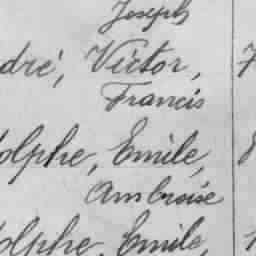 Joseph
dré, Victor,
Francis
olphe, Emile,
Ambroise
olphe, Emile,